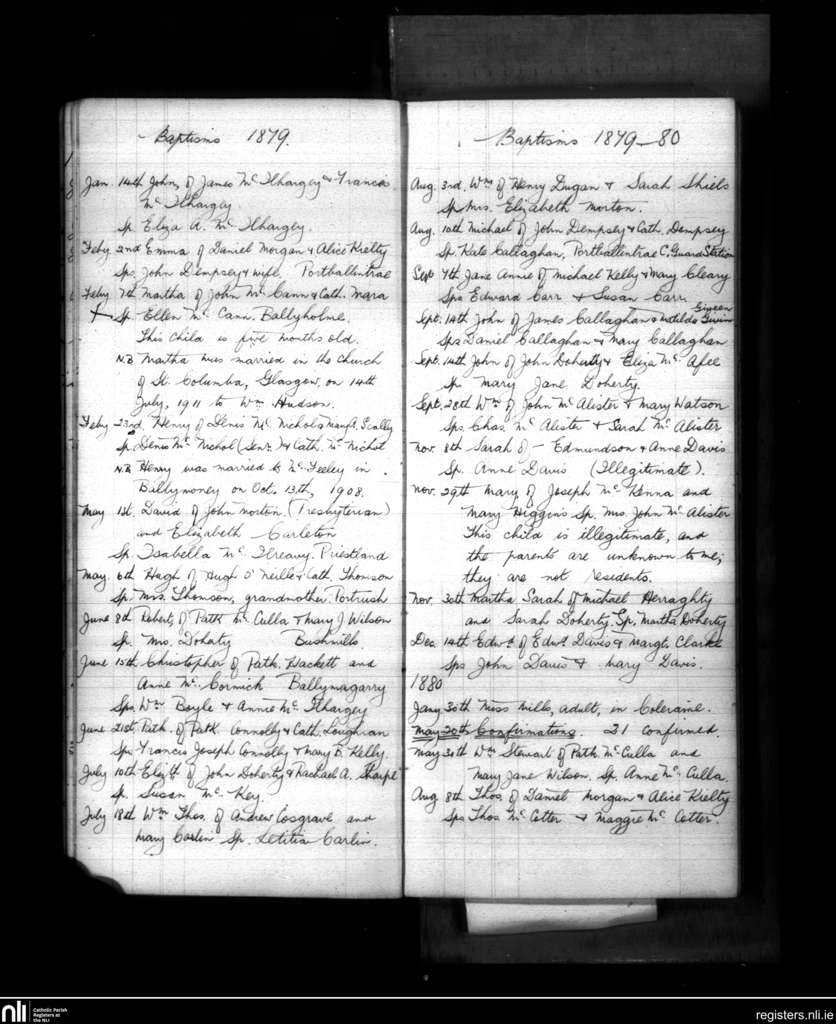 Baptisms 1879.
Jan. 14th John, of James Mc Ilhargey & Francis
Mc Ilhargey.
Sp. Eliza A. Mc Ilhargey.
Feby 2nd Emma of Daniel Morgan & Alice Kielty
Sps. John Dempsey & wife, Portballintrae
Feby 7th Martha of John Mc Cann & Cath. Mara
Sp. Ellen Mc Cann. Ballyholme.
This child is five months old.
N.B. Martha was married in the Church
of St. Columba, Glasgow, on 14th
July, 1911 to Wm Hudson.
Feby 23rd. Henry of Denis Mc Nichol & Margt. Scally
Sp. Denis Mc Nichol (Senr.) & Cath. Mc Nichol
N.B. Henry was married to Mc Feeley in
Ballymoney on Oct. 13th, 1908.
May 1st. David of John Morton. (Presbyterian)
and Elizabeth Carleton
Sp. Isabella Mc Ilreavy. Priestland
May. 6th Hugh of Hugh O'Neille & Cath. Thomson
Sp. Mrs. Thomson, grandmother. Portrush
June 8th Robert, of Patk Mc Culla & Mary J Wilson
Sp. Mrs. Doharty Bushmills.
June 15th Christopher of Patk. Hackett and
Anne Mc Cormick Ballymagarry
Sps. Wm Boyle & Annie Mc Ilhargey
June 21st. Patk. of Patk. Connolly & Cath. Loughran
Sps. Francis Joseph Connolly & Mary B. Kelly.
July 10th Elizbt. of John Doherty & Rachael A. Sharpe
Sp. Susan Mc Key.
July 18th Wm Thos. of Andrew Cosgrave and
Mary Carlin Sp. Letitia Carlin.
Baptisms 1879-80
Aug. 3rd. Wm of Henry Dugan & Sarah Shiels
Sp. Mrs. Elizabeth Morton.
Aug. 10th Michael of John Dempsey & Cath. Dempsey
Sp. Kate Callaghan, Portballintrae C. Guard Station
Sept 7th Jane Annie of Michael Kelly & Mary Cleary
Sps Edward Carr & Susan Carr.
Giveen
Sept. 14th John of James Callaghan & Matilda Givin
Sps Daniel Callaghan & Mary Callaghan
Sept. 14th John of John Doherty & Eliza Mc Afee
Sp. Mary Jane Doherty.
Sept. 28th Wm of John Mc Alister & Mary Watson
Sps. Chas. Mc Alister & Sarah Mc Alister
Nov. 8th Sarah of - Edmundson & Anne Davis
Sp. Anne Davis (Illegitimate).
Nov. 29th Mary of Joseph Mc Kenna and
Mary Higgins Sp. Mrs. John Mc Alister
This child is illegitimate, and
the parents are unknown to me;
they are not residents.
Nov. 30th Martha Sarah of Michael Herraghty
and Sarah Doherty. Sp. Martha Doherty
Dec. 14th Edwd. of Edwd. Davis & Margt. Clarke
Sps John Davis & Mary Davis.
1880
Jany 30th Miss Mills, adult, in Coleraine.
May 20th Confirmations. 21 confirmed.
May 30th Wm Stewart of Patk Mc Culla and
Mary Jane Wilson. Sp. Anne Mc Culla
Aug 8th Thos. of Daniel Morgan & Alice Kielty
Sps Thos. Mc Cotter & Maggie Mc Cotter.
nli
Catholic Parish
Registers at
the NLI
registers.nli.ie